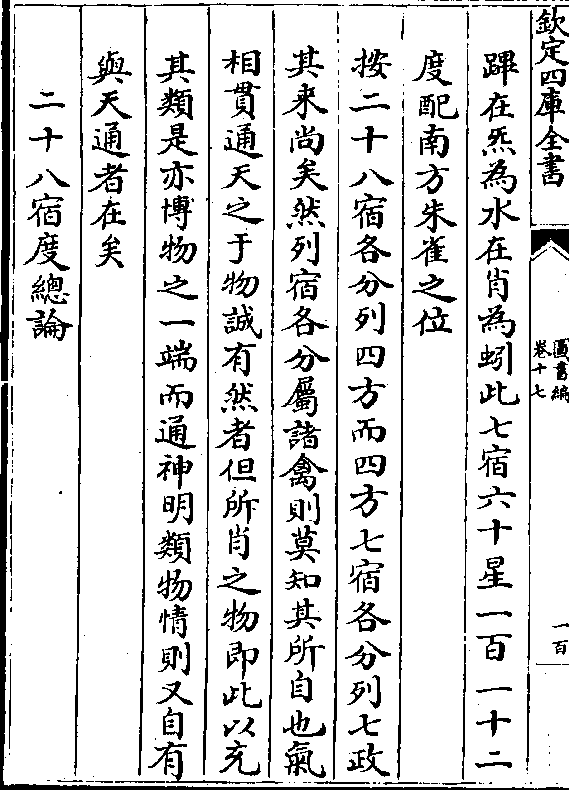 欽定四庫全書
圖書編
卷十七
一百
蹕在炁為水在肖為蚓此七宿六十星一百一十二
度配南方朱雀之位
按二十八宿各分列四方而四方七宿各分列七政
其来尚矣然列宿各分屬諸禽則莫知其所自也氣
相貫通天之于物誠有然者但所肖之物即此以充
其類是亦博物之一端而通神明類物情則又自有
與天通者在矣
二十八宿度總論